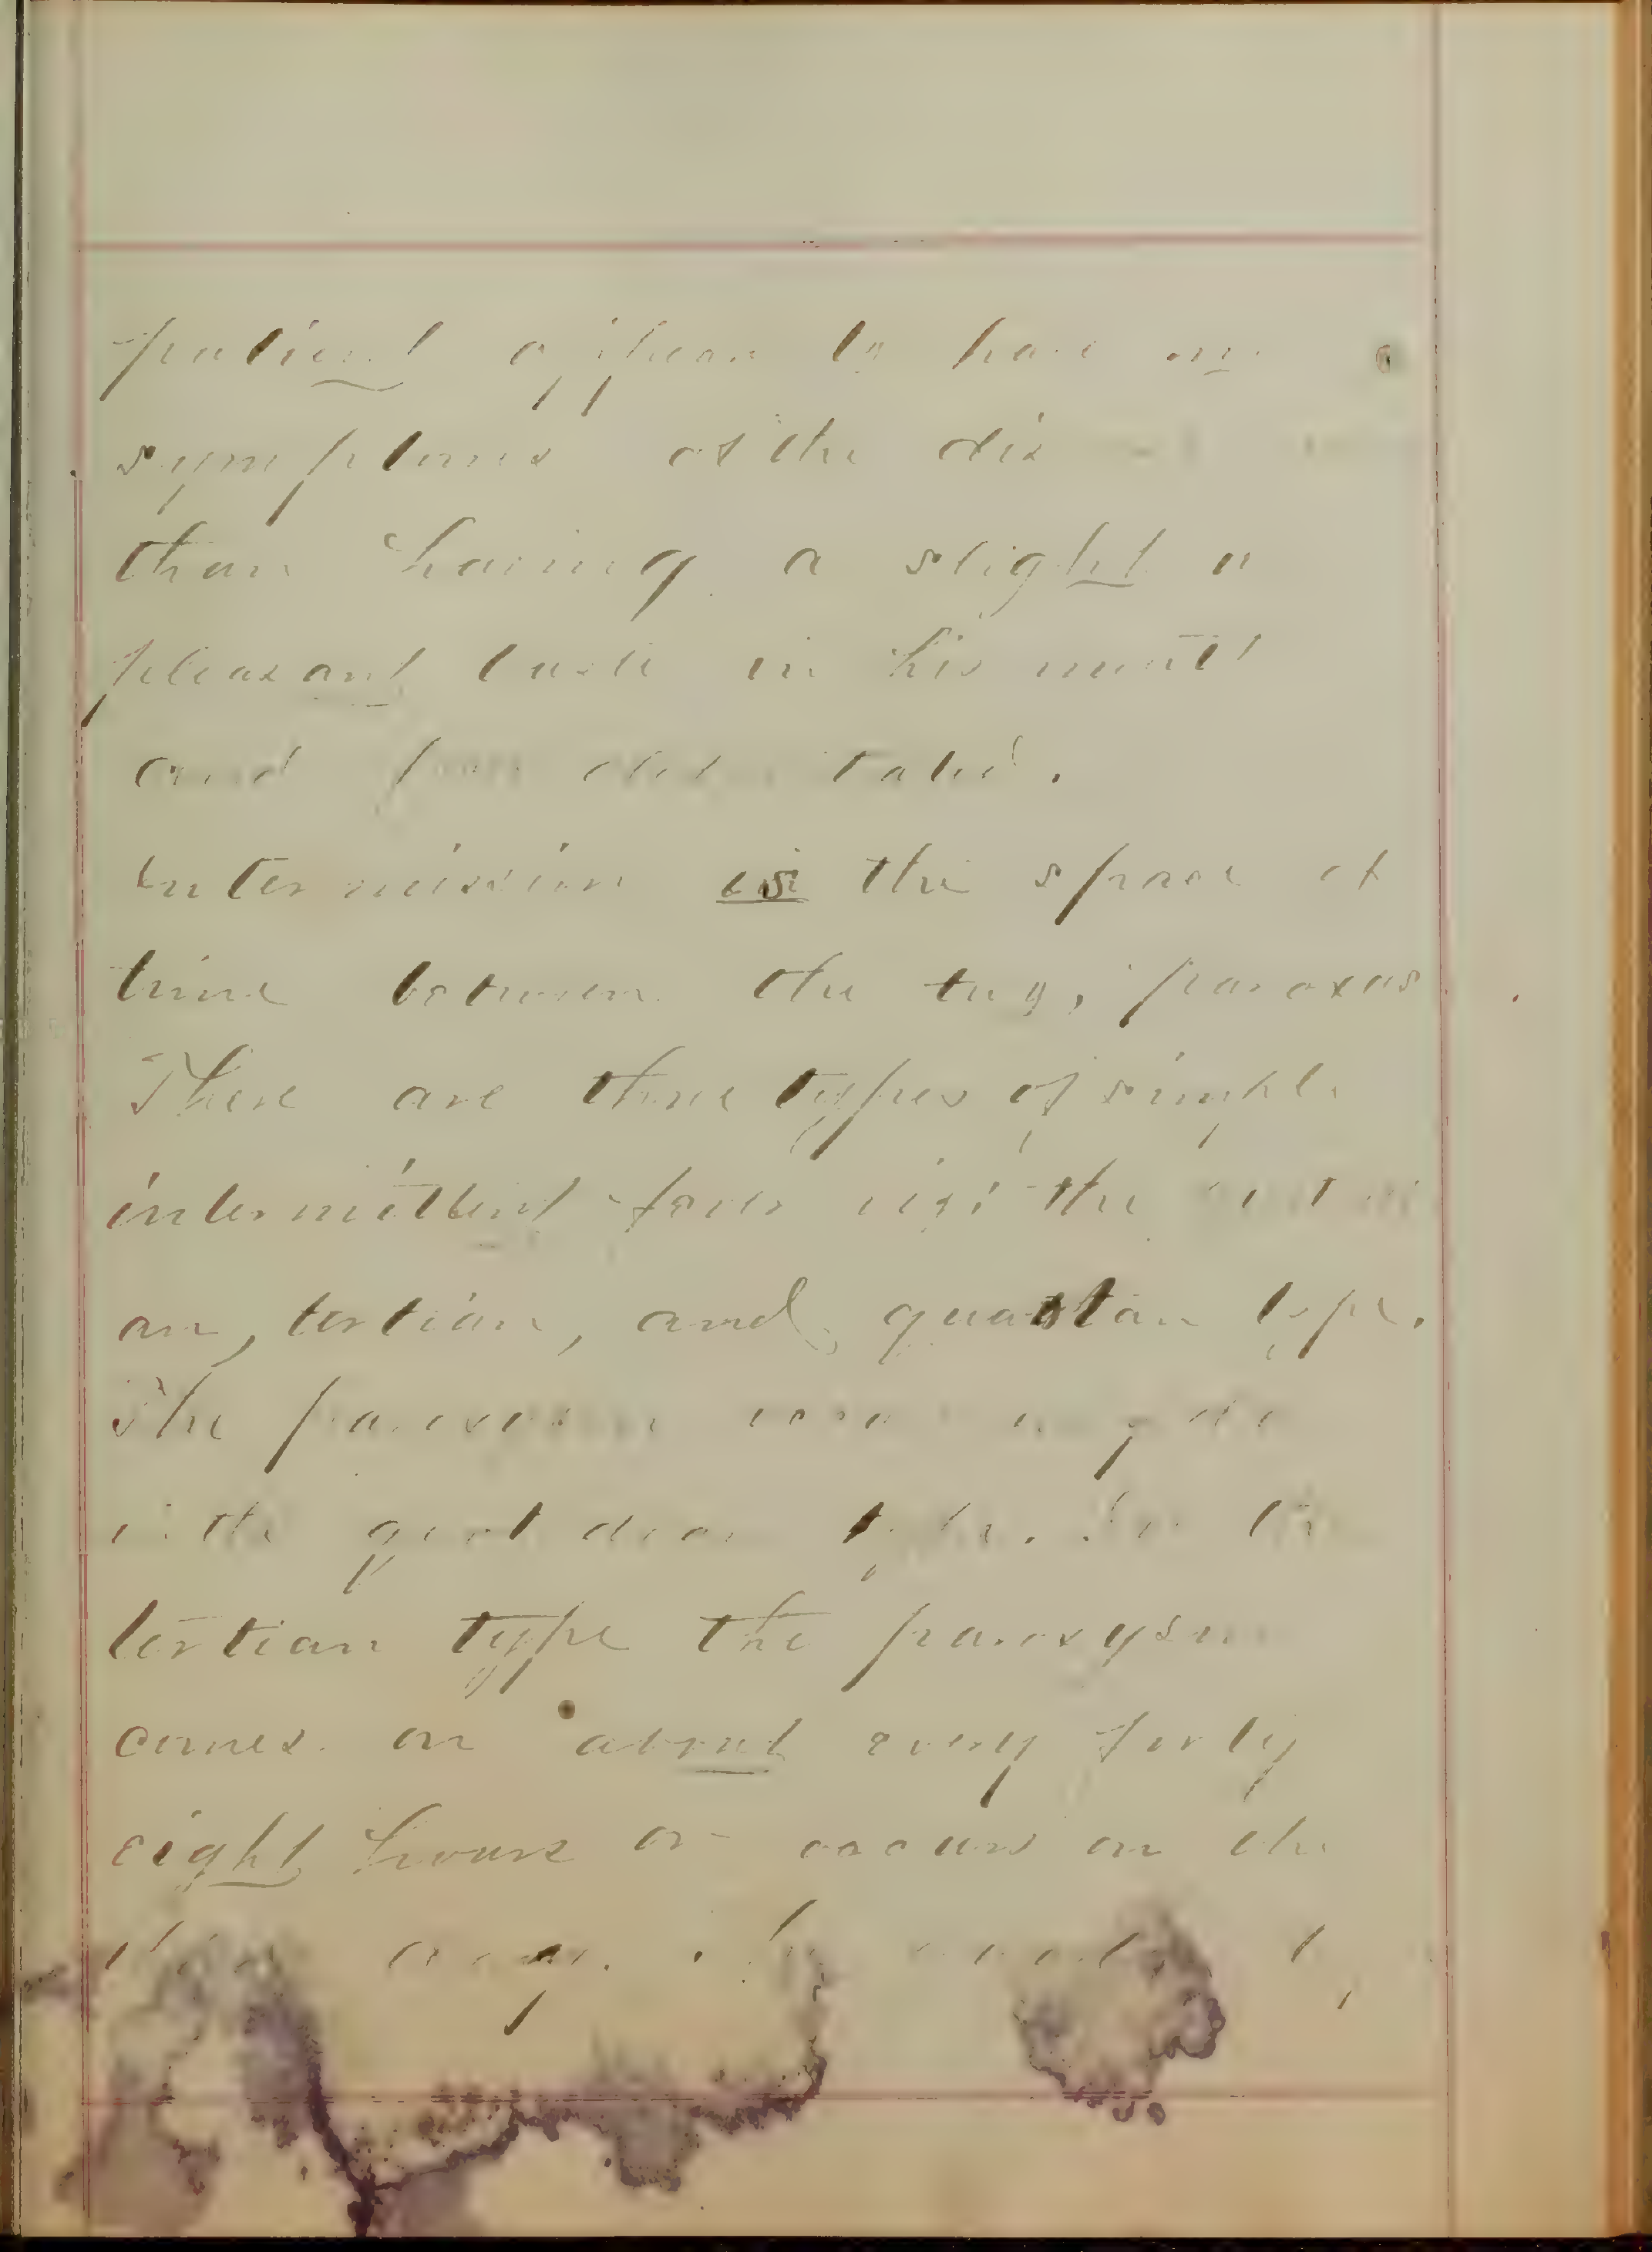 patient appears to have no
symptoms of the dis
than having a slight un
pleasant taste in his mouth
and
Intermission is the space of
time between the two, paroxys
There are three types of simple
intermittent fever viz: the
an, tertian, and quartan type.
The paroxysm
in the quotidian type. In the
tertian type the paroxysm
comes on about every forty
eight hours or occurs on the
third day.